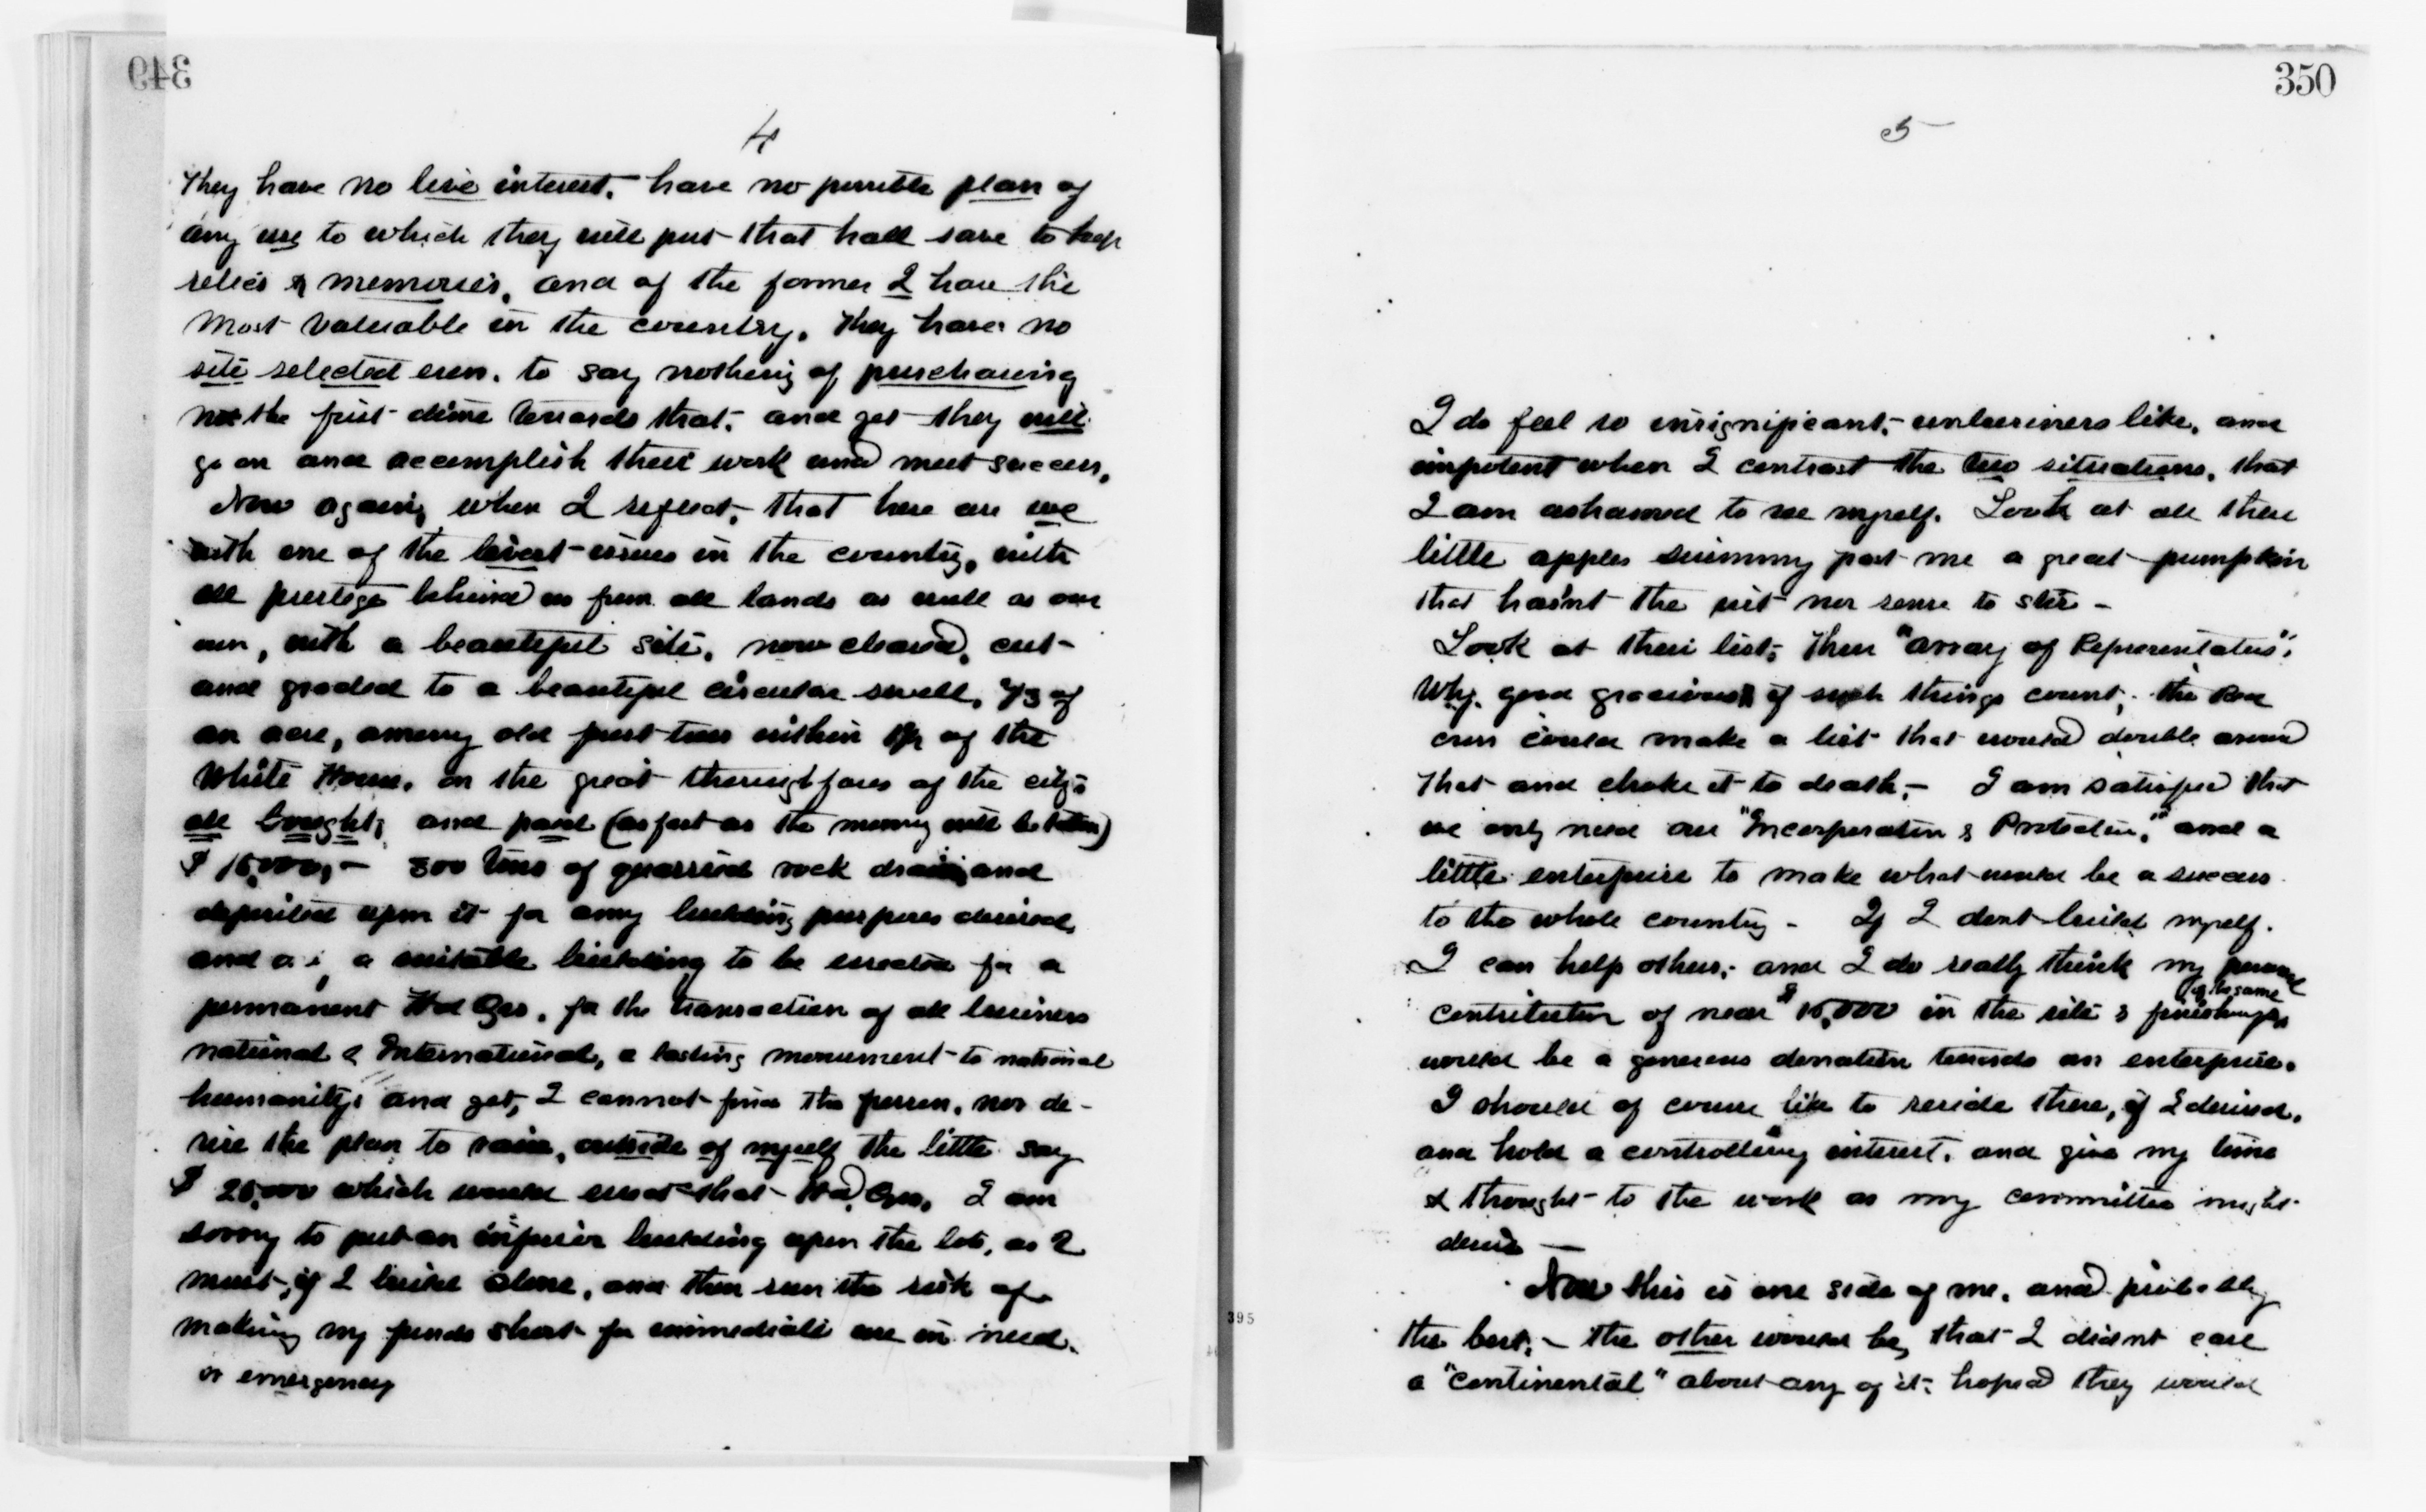 349
4
They have no live interest. have no possible plan of
any use to which they will put that hall save to keep
relics & memories, and of the former I have the
most valuable in the country. They have no
site selected even. to say nothing of purchasing
not the first dime towards that. and yet they will
go on and accomplish their work and meet success.
Now again, when I reflect, that here are we
with one of the livest issues in the country, with
all prestige behind us from all lands as well as our
own, with a beautiful site, now cleared, cut
and graded to a beautiful circular swell, 1/3 of
an acre, among old fruit trees within of the
White House. on the great thoroughfares of the city
all bought, and paid (as fast as the money will be taken)
$15,000,— 300 tons of quarried rock and
deposited upon it for any building purposes desired,
and a suitable building to be erected for a
permanent Hd Qrs. for the transaction of all business
national & International, a lasting monument to national
humanity. And yet, I cannot find the person. nor de-
vise the plan to raise, outside of myself the little say
$ 25,000 which would erect that Hd. Qrs. I am
sorry to put an inferior building upon the lot, as I
must, if I build alone, and then run the risk of
making my funds short for immediate use in need.
or emergency
350
5
I do feel so insignificant, unbusiness like, and
impotent when I contrast the two situations, that
I am ashamed to see myself. Look at all these
little apples swimming past me a great pumpkin
that hasn't the wit nor sense to stir —
Look at their list, their "array of Representatives".
Why. good gracious if such things count, the Red
cross could make a list that would double around
that and choke it to death,— I am satisfied that
we only need our "Incorporation & Protection," and a
little enterprise to make what would be a success
to the whole country — If I dont build myself.
I can help others; and I do really think my personal
of the same
contribution of near $15,000 in the site &
would be a generous donation towards an enterprise.
I should of course like to reside there, if I desired.
and hold a controlling interest. and give my time
& thought to the work as my committee might
desire —
Now this is one side of me. and probably
the best. — the other would be, that I didnt care
a "continental" about any of it. hoped they would
395